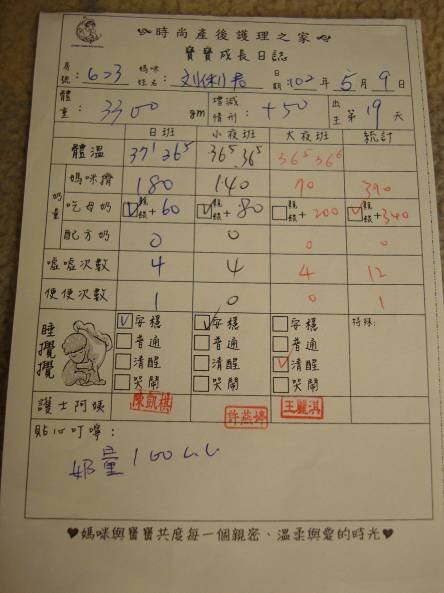 時尚產後護理之家
寶寶成長日誌
房號：603 媽咪姓名：劉俐君 日期：102年5月9日
體重：3300gm 增減情形：+50 出生第19天
日班 小夜班 大夜班 統計
體溫 37¹ 36⁵ 36⁵ 36⁵ 36⁵ 36⁶
奶量
媽咪擠 180 140 70 390
吃母奶 親餵+60 親餵+80 親餵+200 親餵+340
配方奶 0 0 0 0
噓噓次數 4 4 4 12
便便次數 1 0 0 1
睡攪攪
安穩 安穩 安穩 特殊：
普通 普通 普通
清醒 清醒 清醒
哭鬧 哭鬧 哭鬧
護士阿姨 陳凱棋 許燕婷 王麗淇
貼心叮嚀：
奶量100cc
♥媽咪與寶寶共度每一個親密、溫柔與愛的時光♥